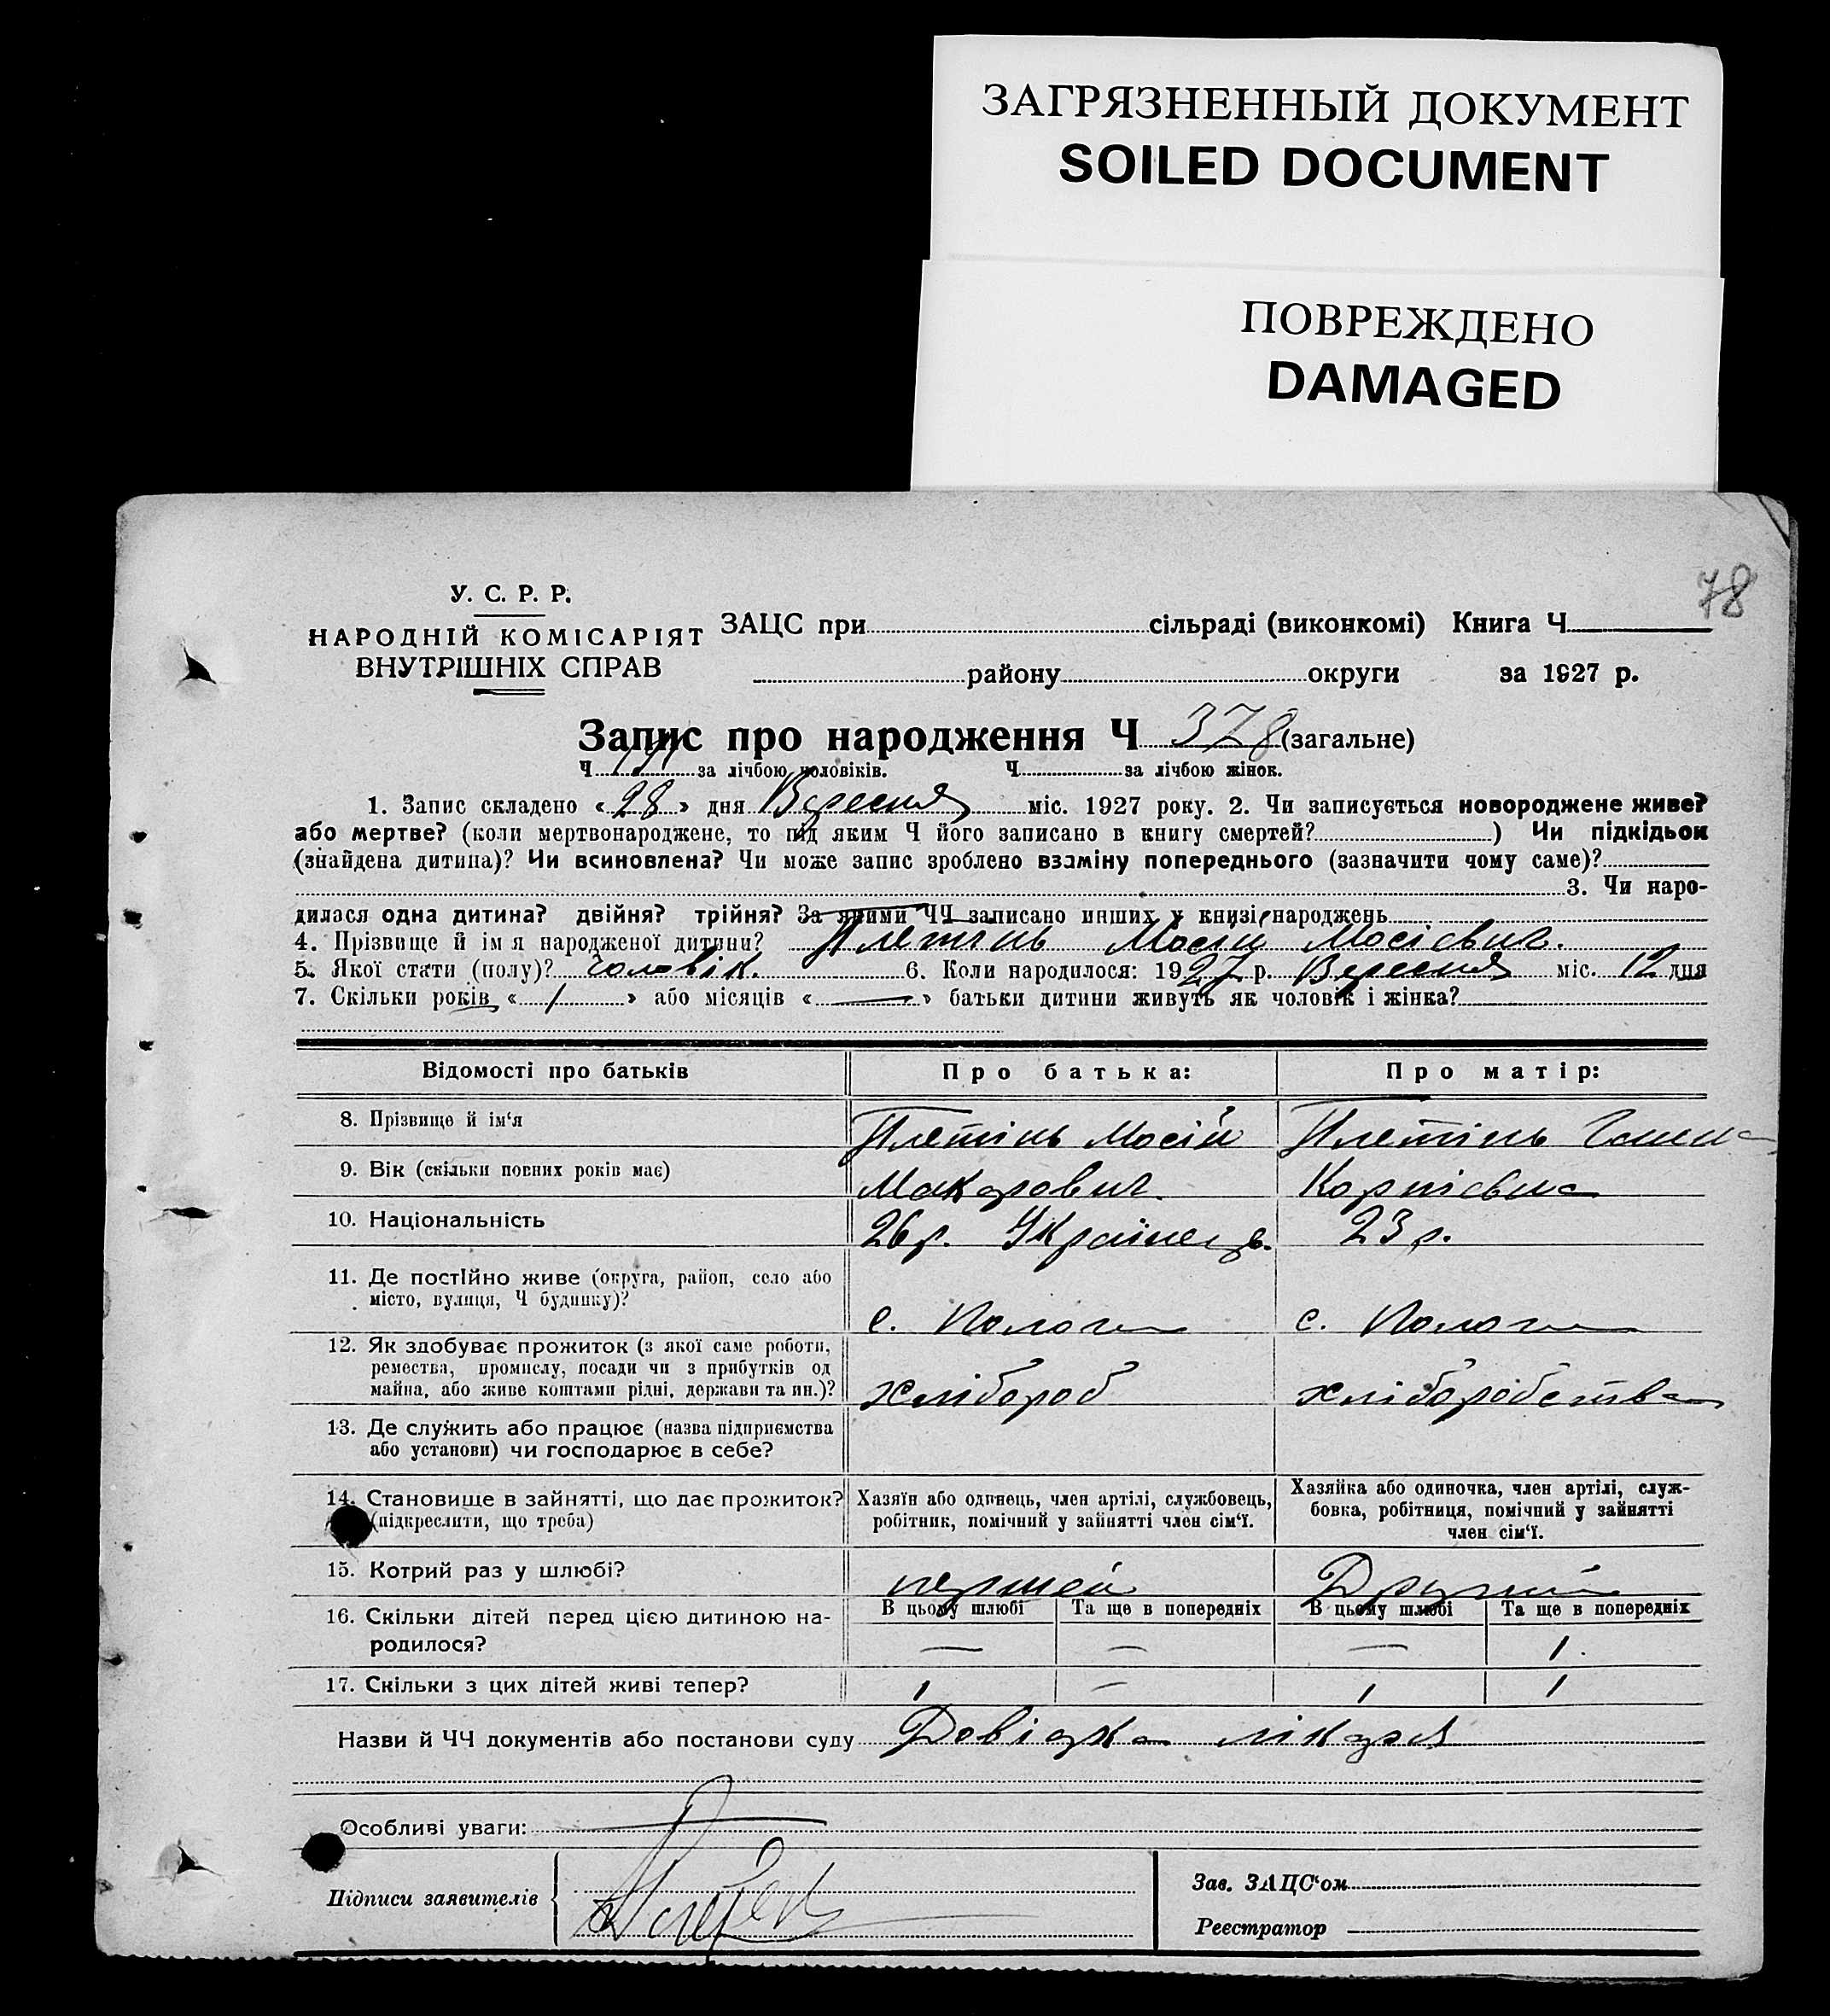 ЗАГРЯЗНЕННЫЙ ДОКУМЕНТ
SOILED DOCUMENT
ПОВРЕЖДЕНО
DAMAGED
78
У. С. Р. Р.
НАРОДНІЙ КОМІСАРІЯТ
ВНУТРІШНІХ СПРАВ
ЗАЦС при сільраді (виконкомі) Книга Ч
району округи за 1927 р.
Запис про народження Ч 378 (загальне)
Ч за лічбою чоловіків. Ч за лічбою жінок.
1. Запис складено « 28 » дня Вересня міс. 1927 року. 2. Чи записується новороджене живе?
або мертве? (коли мертвонароджене, то під яким Ч його записано в книгу смертей? ) Чи підкідьок
(знайдена дитина)? Чи всиновлена? Чи може запис зроблено взаміну попереднього (зазначити чому саме)?
3. Чи наро-
дилася одна дитина? двійня? трійня? За якими ЧЧ записано инших у книзі народжень
4. Прізвище й ім я народженої дитини? Плетінь Мосій Мосієвич.
5. Якої стати (полу)? Чоловік. 6. Коли народилося: 1927 р. Вересня міс. 12 дня
7. Скільки років « 1 » або місяців « — » батьки дитини живуть як чоловік і жінка?
Відомості про батьків Про батька: Про матір:
8. Прізвище й ім‘я Плетінь Мосій Плетінь
9. Вік (скільки повних років має) Макарович Корніевна
10. Національність 26 р. Українець. 23 р.
11. Де постійно живе (округа, район, село або
місто, вулиця, Ч будинку)? с. Пологи с. Пологи
12. Як здобуває прожиток (з якої саме роботи,
ремества, промислу, посади чи з прибутків од
майна, або живе коштами рідні, держави та ин.)? хлібороб хліборобства
13. Де служить або працює (назва підприємства
або установи) чи господарює в себе?
14. Становище в зайнятті, що дає прожиток?
(підкреслити, що треба)
Хазяїн або одинець, член артілі, службовець,
робітник, помічний у зайнятті член сім‘ї.
Хазяйка або одиночка, член артілі, служ-
бовка, робітниця, помічний у зайнятті
член сім‘ї.
15. Котрий раз у шлюбі? перший Другий
16. Скільки дітей перед цією дитиною на-
родилося?
В цьому шлюбі Та ще в попередніх В цьому шлюбі Та ще в попередніх
— — — 1.
17. Скільки з цих дітей живі тепер? 1 — 1 1
Назви й ЧЧ документів або постанови суду Довідка лікаря
Особливі уваги:
Підписи заявителів
Зав. ЗАЦС‘ом
Реєстратор